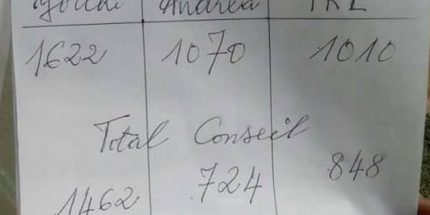 Andrea
1622 1070 1010
Total Conseil
1462 724 848